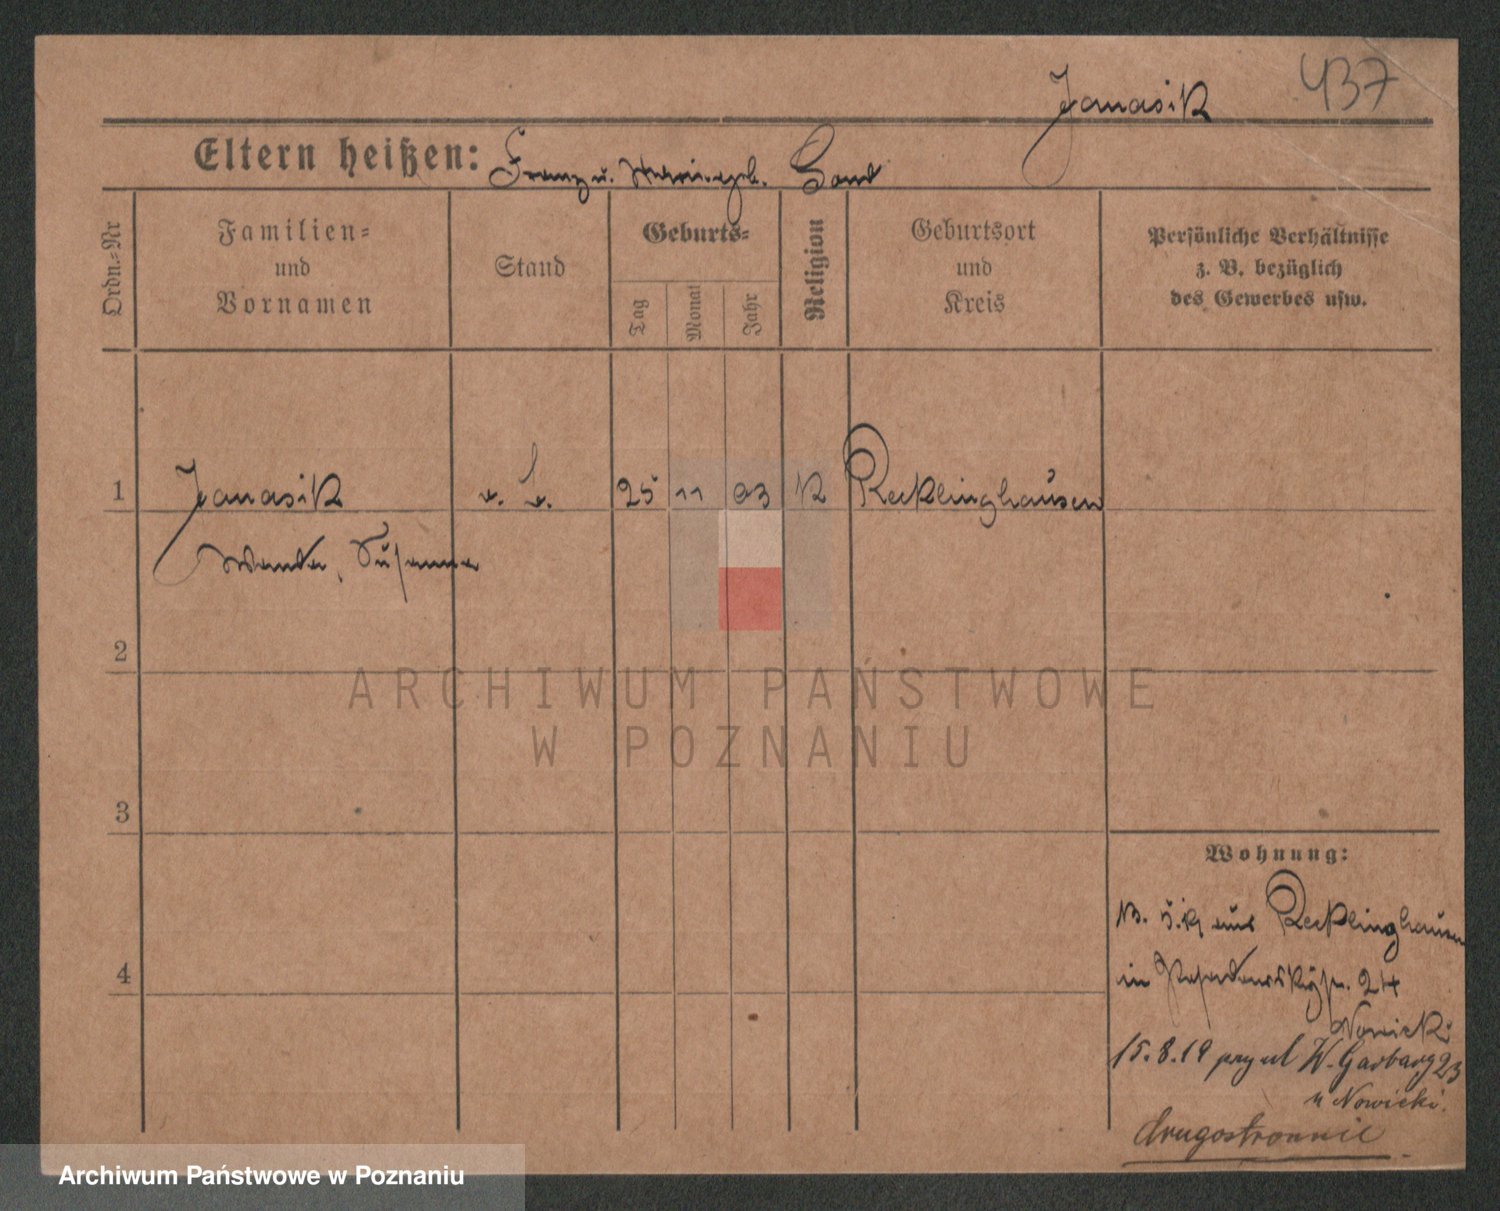 437
Janasik
Eltern heißen: Franz u. geb. Band
Ordn.-Nr
Familien-
und
Vornamen
Stand
Geburts-
Tag
Monat
Jahr
Religion
Geburtsort
und
Kreis
Persönliche Verhältnisse
z. B. bezüglich
des Gewerbes usw.
1 Janasik 25 11 93 K Recklinghausen
Wanda, Susanna
2
3
4
Wohnung:
aus Recklinghausen
in 24
Nowicki
15.8.19 przy ul W. Garbary 23
u Nowicki.
drugostronnie
ARCHIWUM PAŃSTWOWE
W POZNANIU
Archiwum Państwowe w Poznaniu